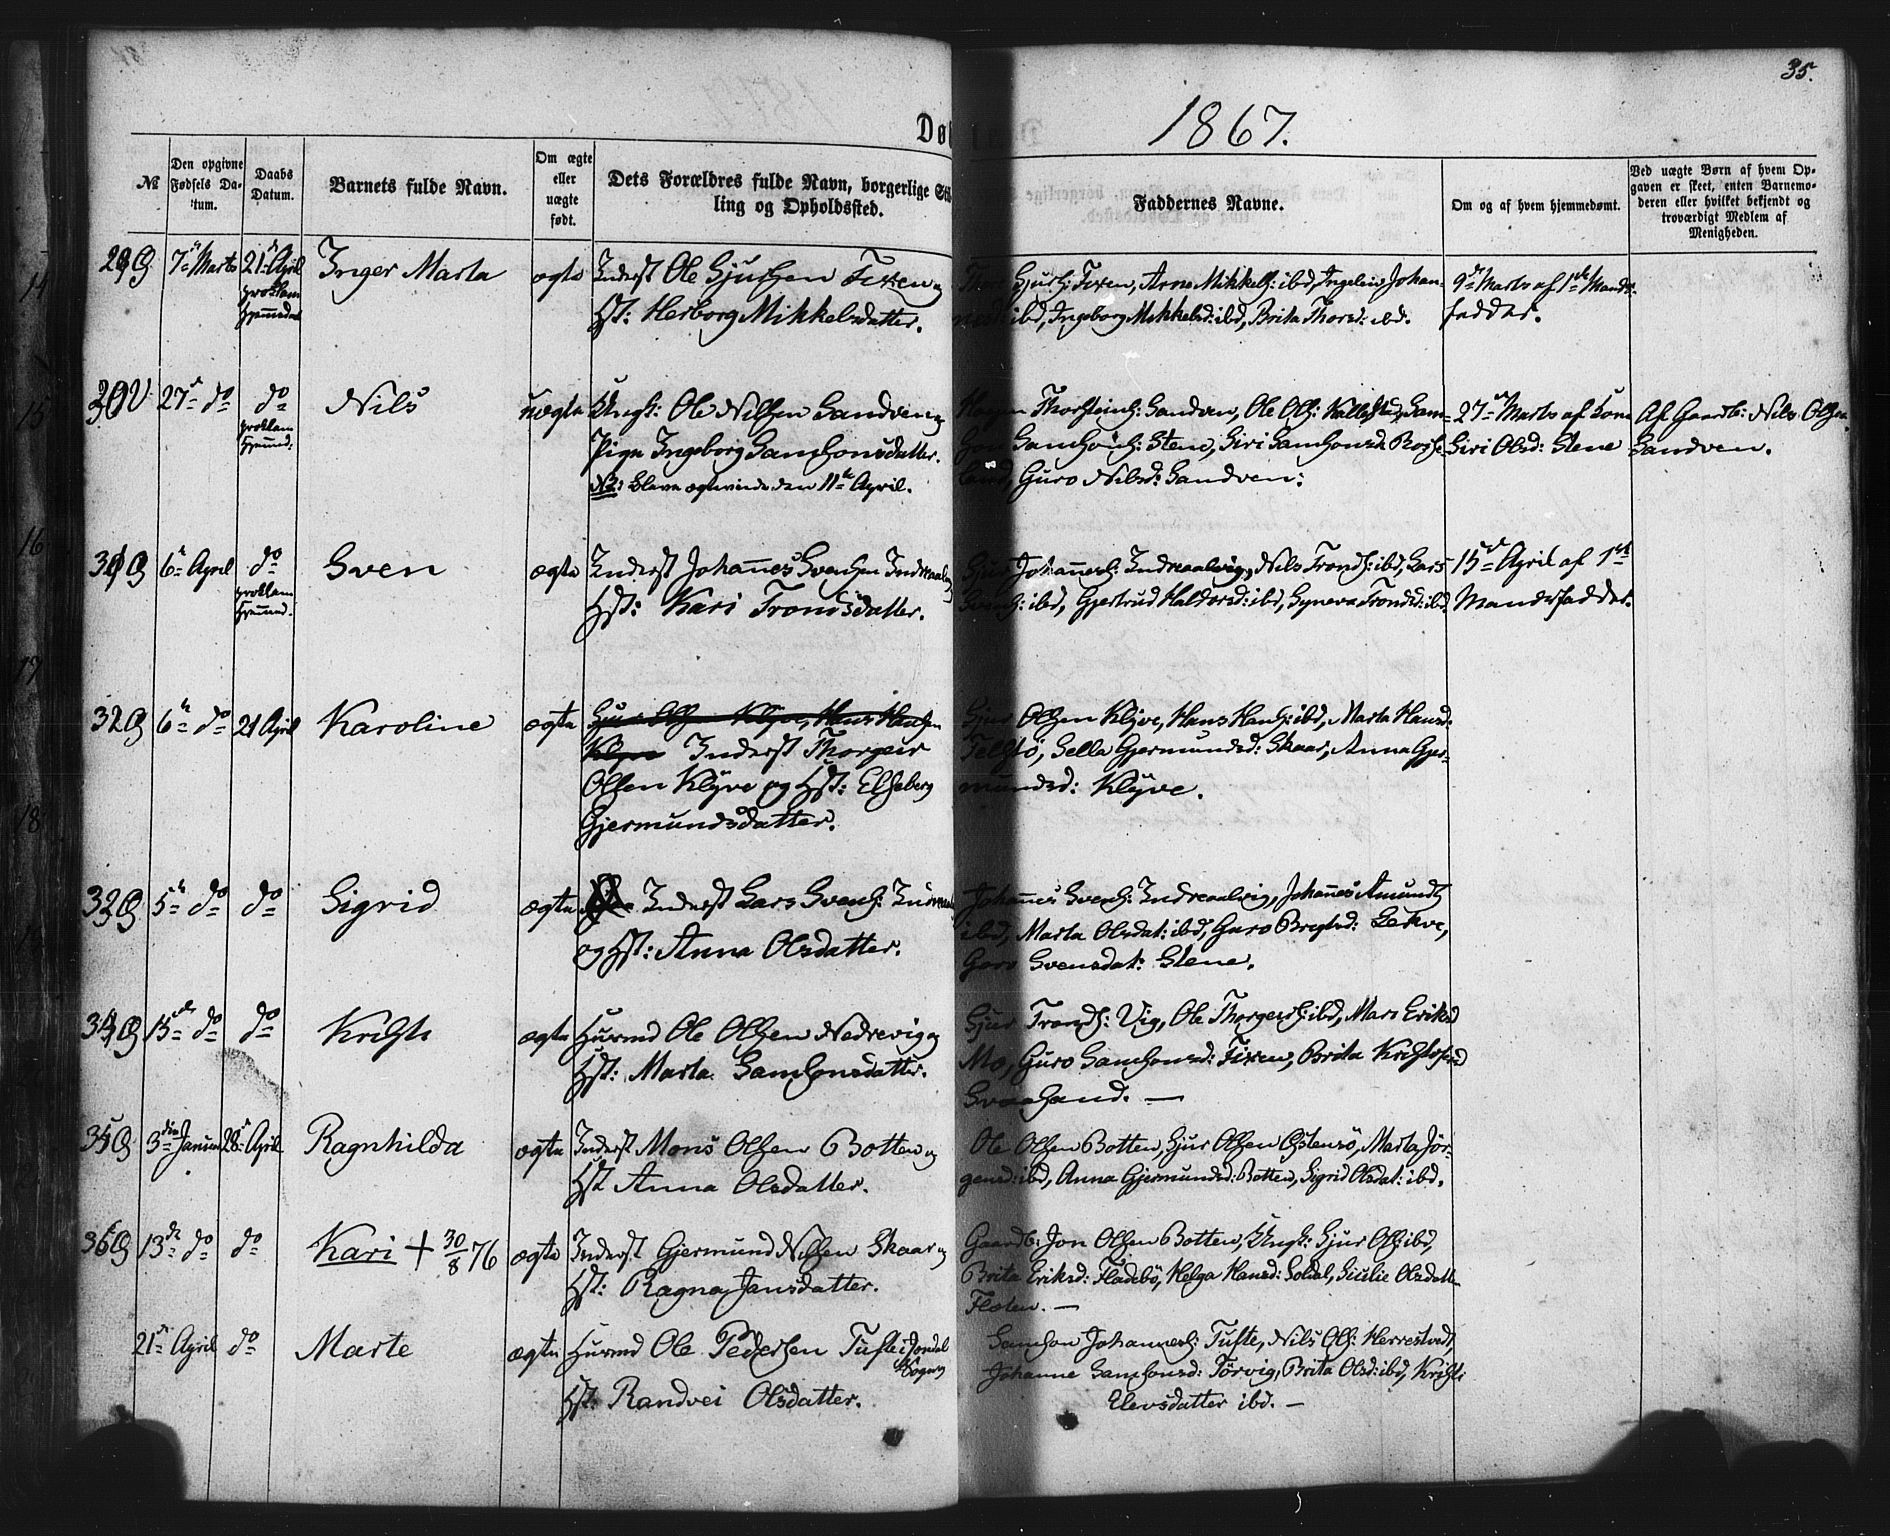 35.
1867.
Døb
№
Den opgivne Fødsels Da-tum.
Daabs Datum.
Barnets fulde Navn.
Om ægte eller uægte født.
Dets Forældres fulde Navn, borgerlige Stil-
ling og Opholdssted.
Faddernes Navne.
Om og af hvem hjemmedøbt.
Ved uægte Børn af hvem Op-
gaven er skeet, enten Barnemo-
deren eller hvilket bekjendt og
troværdigt Medlem af
Menigheden.
29 G 7de Marts 21de April Inger Marta ægte Inderst Ole Gjursen Fixen og
proklam. hjemmed.
Hst: Herborg Mikkelsdatter.
Gjurs: Fixen, Arne Mikkels: ibd, Ingeleiv Johan-
nesd: ibd, Ingeborg Mikkelsd: ibd, Brita Thorsd: ibd.
9de Marts af 1ste Mands-
fadder.
30 V 27de do do Nils uægte Ungk: Ole Nilsen Sandven og
proklam hjemmed:
Pige Ingeborg Samsonsdatter.
NB: Bleve ægteviede den 11te April.
Thorsteins: Sandven, Ole Ols: Kallestad, Sam-
son Samsons: Stene, Siri Samsonsd: Rosse-
land, Guro Nilsd: Sandven.
27de Marts af Kone
Siri Olsd: Stene
Af Gaardb: Nils Olsen
Sandven.
31 G 6te April do Sven ægte Inderst Johannes Svensen Indreaalvig
proklam hjemmed.
Hst: Kari Trondsdatter.
Gjur Johanness: Indreaalvig, Nils Tronds: ibd, Lars
Svens: ibd, Gjertrud Haldorsd: ibd, Syneva Trondsd: ibd.
15de April af 1ste
Mandsfadder.
32 G 6te do 21 April Karoline ægte Gjur Olsen Klyve, Hans Hansen
Klyve Inderst Thorgeir
Olsen Klyve og Hst: Elseberg
Gjermundsdatter.
Gjur Olsen Klyve, Hans Hans: ibd, Marta Hansd:
Telstø, Sella Gjermundsd: Skaar, Anna Gjer-
mundsd: Klyve.
33 G 5te do do Sigrid ægte Inderst Lars Svens: Indreaalvig
og Hst: Anna Olsdatter.
Johannes Svens: Indreaalvig, Johannes Amunds
ibd, Marta Olsdat: ibd, Guro Brytesd: Lekve,
Guro Svensdat: Stene.
34 G 15de do do Kristi ægte Huusmd Ole Olsen Nedrevig og
Hst: Marta Samsonsdatter.
Gjur Tronds: Vig, Ole Thorgeirs: ibd, Mari Eriksd
Mo, Guro Samsonsd: Fixen, Brita Kristofersd
Svaasand. —
35 G 3die Januar 28de April Ragnhilda ægte Inderst Mons Olsen Botten og
Hst Anna Olsdatter.
Ole Olsen Botten, Gjur Olsen Østensø, Marta Jør-
gensd: ibd, Anna Gjermundsd: Botten, Sigrid Olsdat: ibd.
36 G 13de do do Kari + 30/8 76 ægte Inderst Gjermund Nilsen Skaar og
Hst: Ragna Jansdatter.
Gaardb: Jon Olsen Botten, Ungk: Gjur Ols: ibd,
Brita Eriksd: Fladebø, Helga Hansd: Soldal, Sicilie Olsdatter
Floten. —
21de April do Marte ægte Huusmd Ole Pedersen Tufte i Jondal
Sogn og
Hst: Randvei Olsdatter.
Samson Johanness: Tufte, Nils Ols: Herrestvedt,
Johanne Samsonsd: Tørvig, Brita Olsd: ibd, Kristi
Elevsdatter ibd. —
14
15
16
17
18